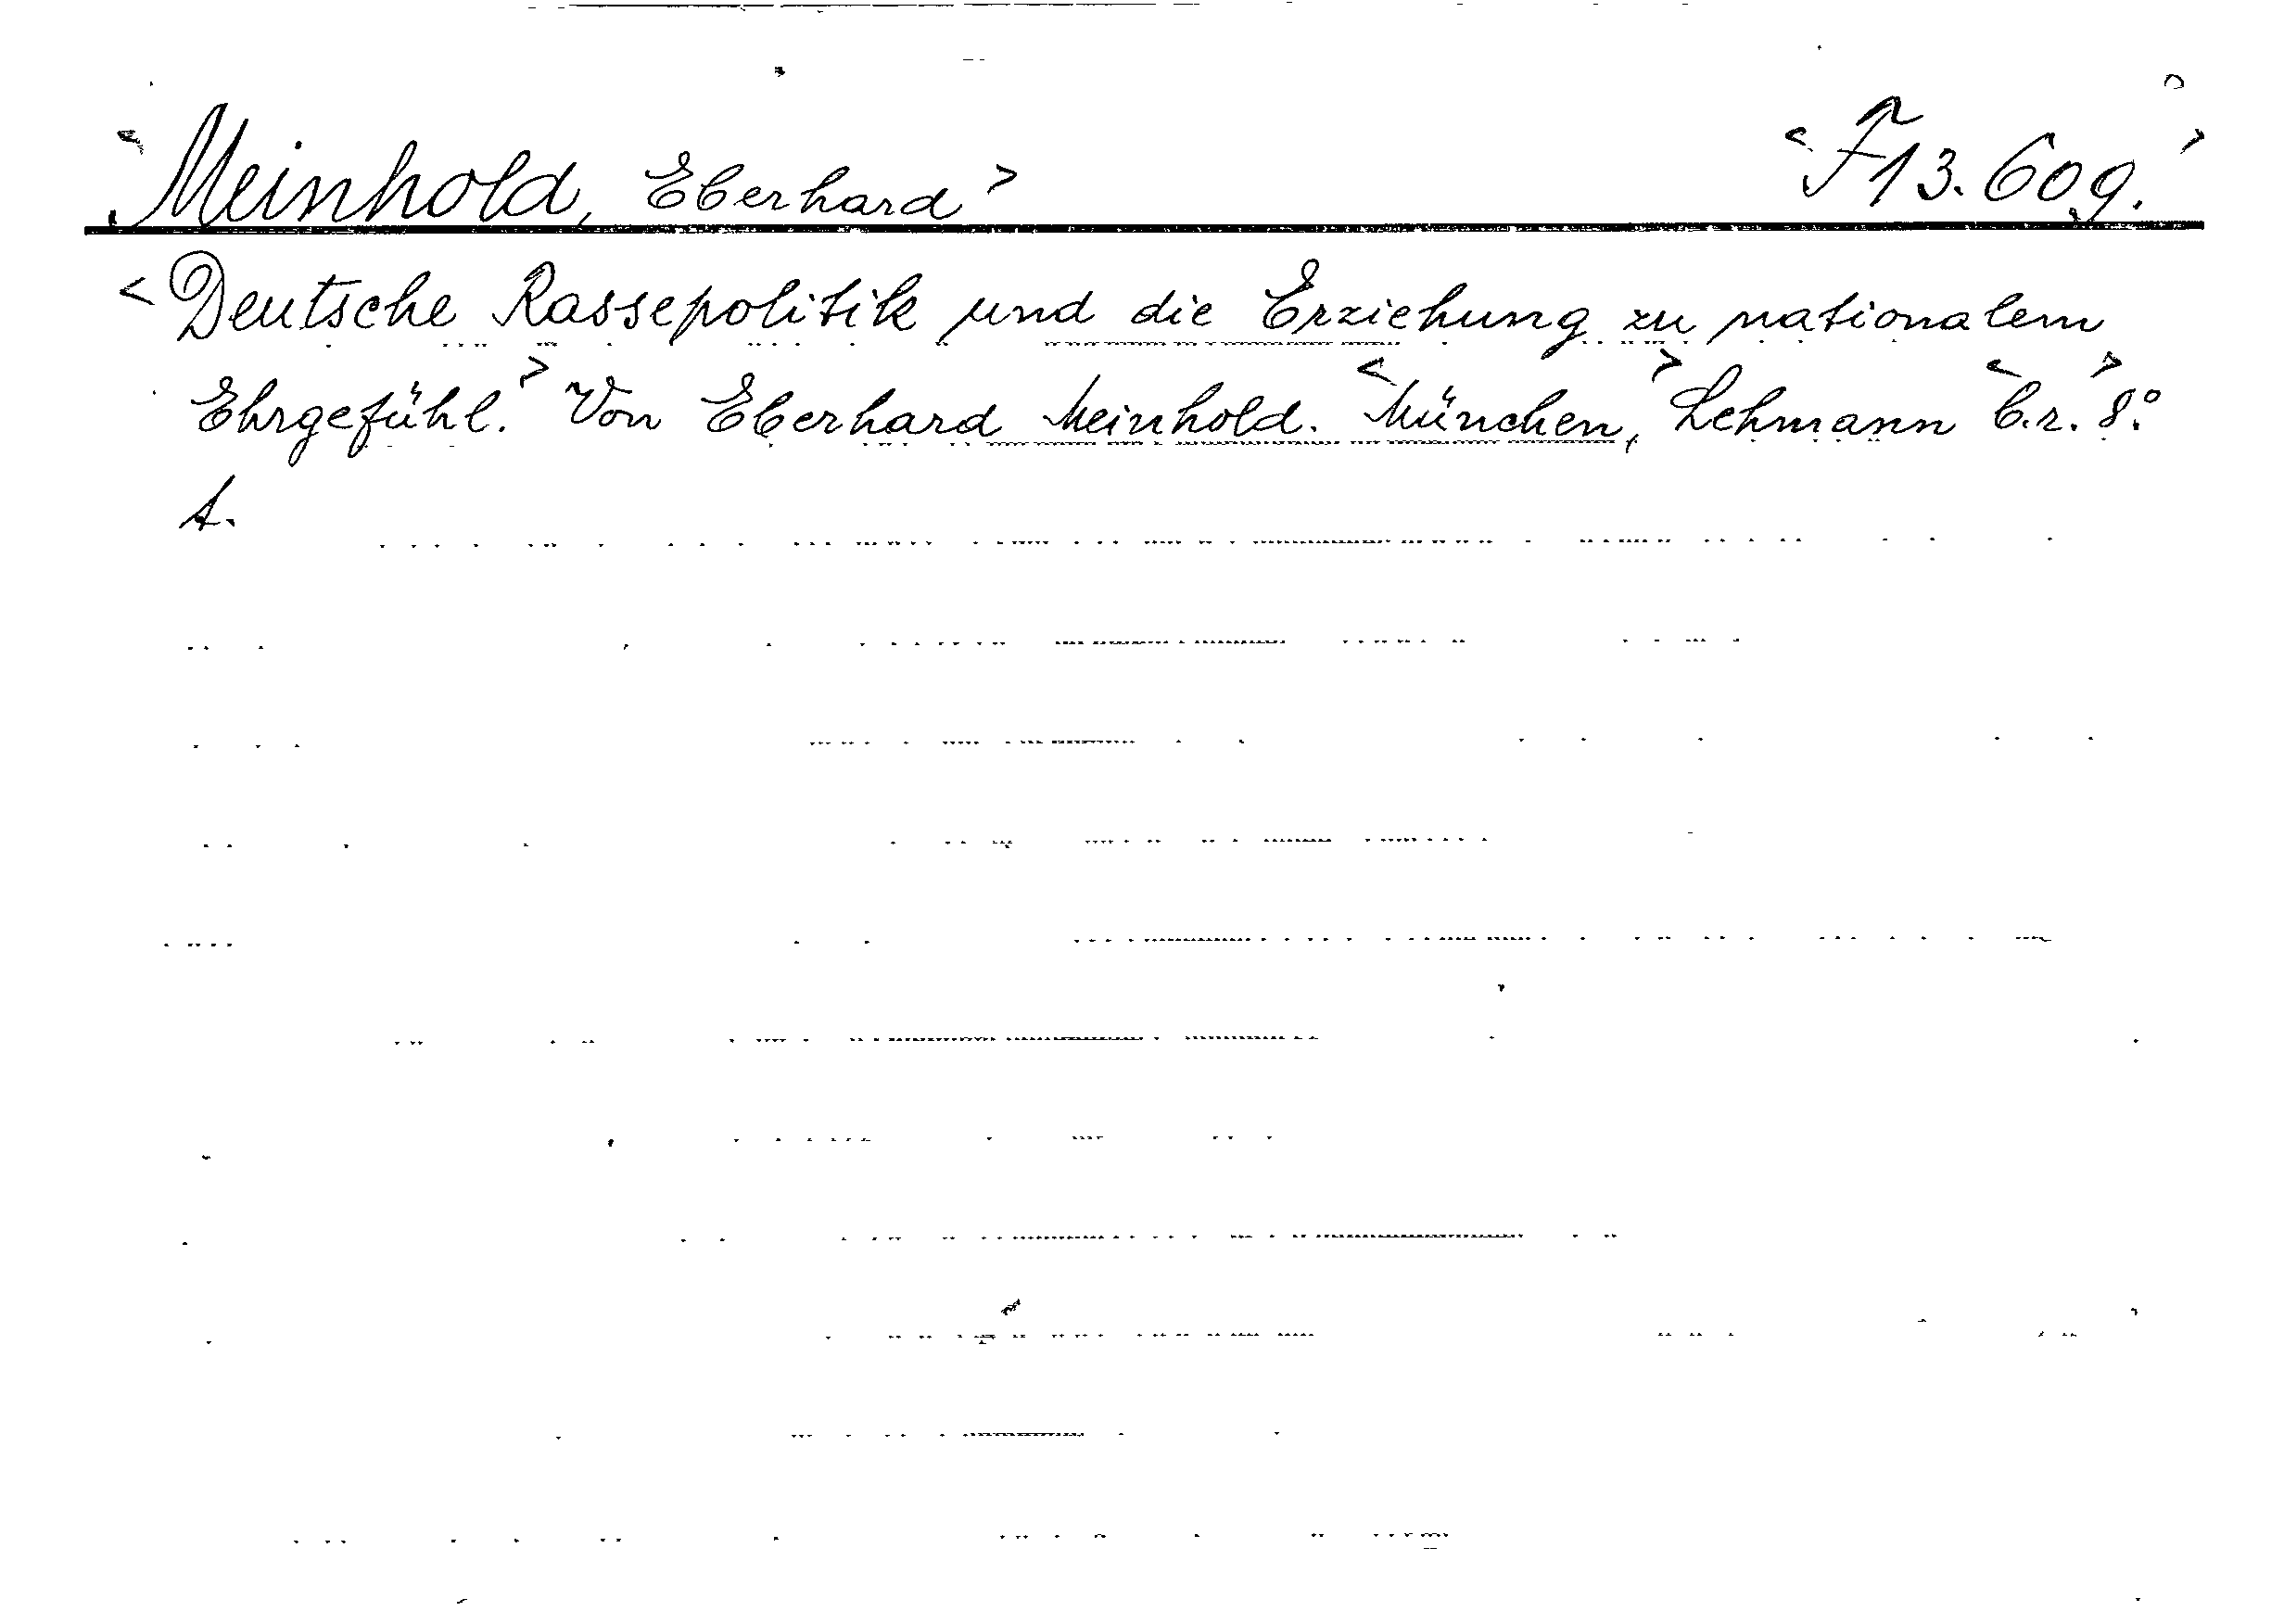 <Meinhold, Eberhard> <F 13.609.>
<Deutsche Rassepolitik und die Erziehung zu nationalem
Ehrgefühl.> Von Eberhard Meinhold. <München,> Lehmann <C.r.> 8.°